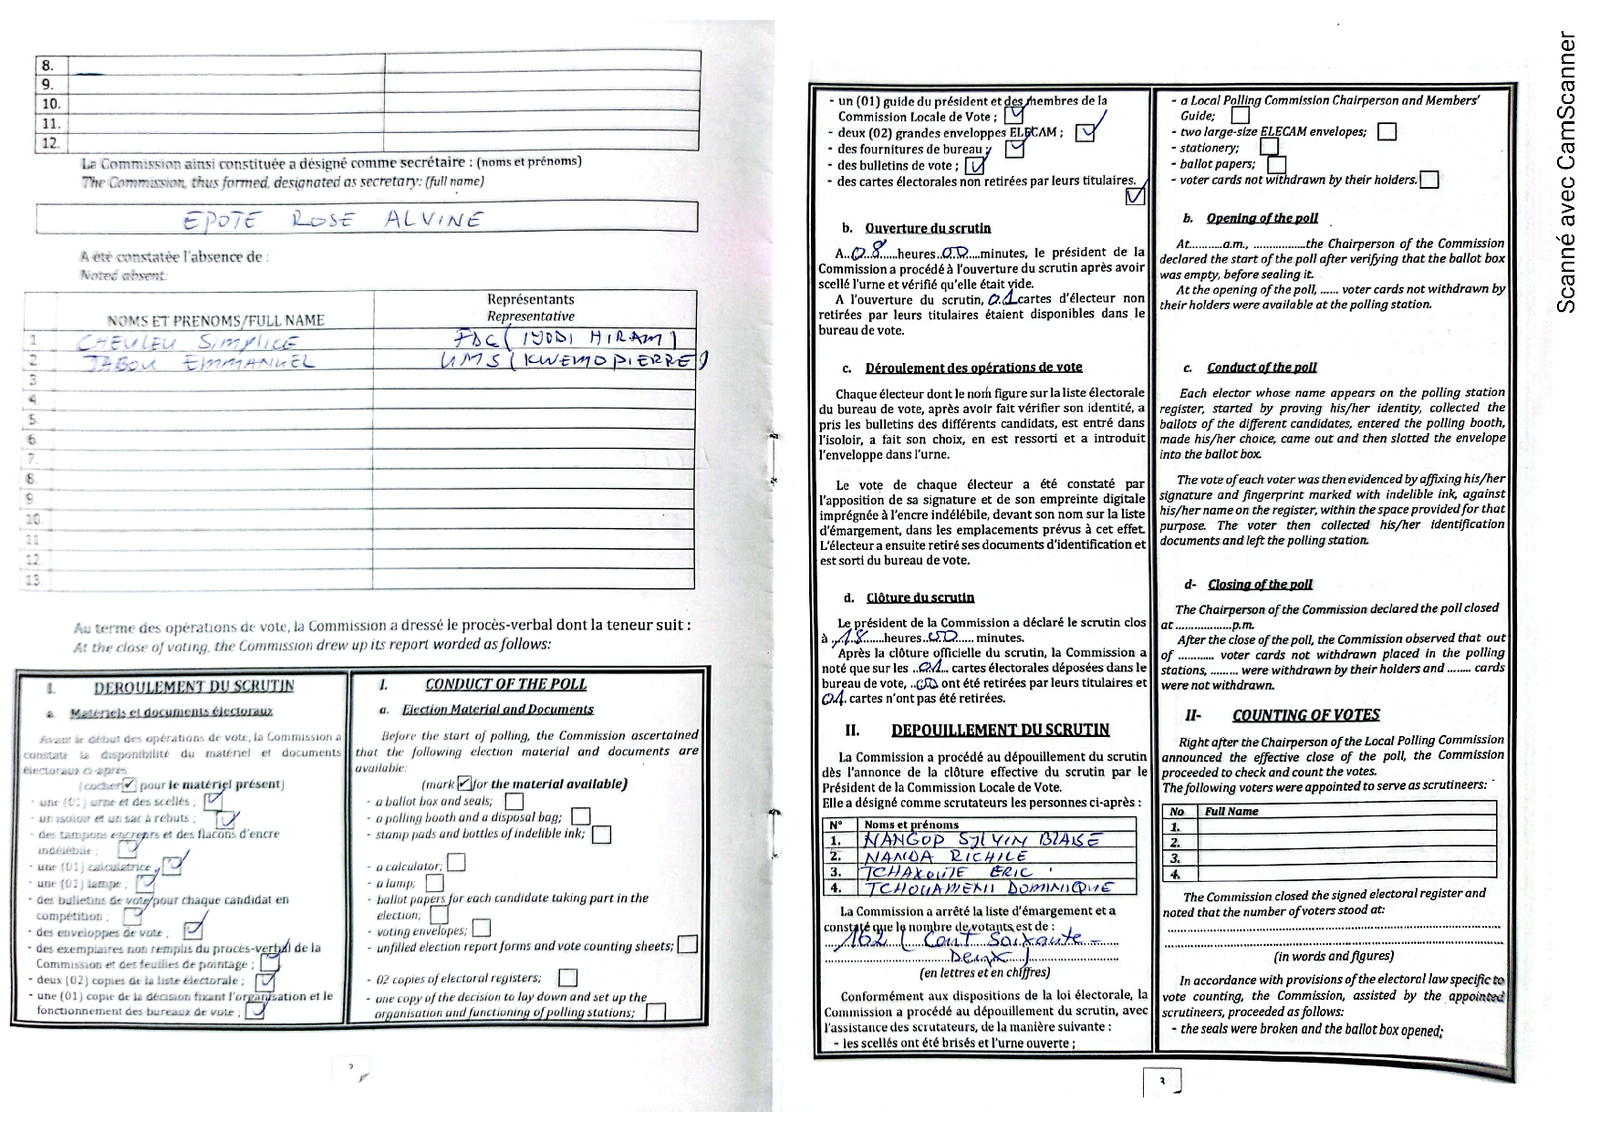 8.
9.
10.
11.
12.
La Commission ainsi constituée a désigné comme secrétaire : (noms et prénoms)
The Commission, thus formed, designated as secretary: (full name)
EPOTE ROSE ALVINE
A été constatée l'absence de :
Noted absent:
NOMS ET PRENOMS/FULL NAME
Représentants
Representative
1 CHEULEU SIMPLICE FDC ( IYODI HIRAM )
2 TABOU EMMANUEL UMS ( KWEMO PIERRE )
3
4.
5.
6
7.
8.
9
10
11
12.
13.
Au terme des opérations de vote, la Commission a dressé le procès-verbal dont la teneur suit :
At the close of voting, the Commission drew up its report worded as follows:
I. DEROULEMENT DU SCRUTIN
a. Matériels et documents électoraux
Avant le début des opérations de vote, la Commission a
constaté la disponibilité du matériel et documents
électoraux ci-après
(cocher ✓ pour le matériel présent)
- une (01) urne et des scellés ;
- un isoloir et un sac à rebuts ;
- des tampons encreurs et des flacons d'encre
indélébile ;
- une (01) calculatrice ;
- une (01) lampe ;
- des bulletins de vote pour chaque candidat en
compétition ;
- des enveloppes de vote ;
- des exemplaires non remplis du procès-verbal de la
Commission et des feuilles de pointage ;
- deux (02) copies de la liste électorale ;
- une (01) copie de la décision fixant l'organisation et le
fonctionnement des bureaux de vote ;
I. CONDUCT OF THE POLL
a. Election Material and Documents
Before the start of polling, the Commission ascertained
that the following election material and documents are
available:
(mark ✓ for the material available)
- a ballot box and seals;
- a polling booth and a disposal bag;
- stamp pads and bottles of indelible ink;
- a calculator;
- a lamp;
- ballot papers for each candidate taking part in the
election;
- voting envelopes;
- unfilled election report forms and vote counting sheets;
- 02 copies of electoral registers;
- one copy of the decision to lay down and set up the
organisation and functioning of polling stations;
- un (01) guide du président et des membres de la
Commission Locale de Vote ;
- deux (02) grandes enveloppes ELECAM ;
- des fournitures de bureau ;
- des bulletins de vote ;
- des cartes électorales non retirées par leurs titulaires.
b. Ouverture du scrutin
A..08.....heures..00....minutes, le président de la
Commission a procédé à l'ouverture du scrutin après avoir
scellé l'urne et vérifié qu'elle était vide.
A l'ouverture du scrutin, 01 cartes d'électeur non
retirées par leurs titulaires étaient disponibles dans le
bureau de vote.
c. Déroulement des opérations de vote
Chaque électeur dont le nom figure sur la liste électorale
du bureau de vote, après avoir fait vérifier son identité, a
pris les bulletins des différents candidats, est entré dans
l'isoloir, a fait son choix, en est ressorti et a introduit
l'enveloppe dans l'urne.
Le vote de chaque électeur a été constaté par
l'apposition de sa signature et de son empreinte digitale
imprégnée à l'encre indélébile, devant son nom sur la liste
d'émargement, dans les emplacements prévus à cet effet.
L'électeur a ensuite retiré ses documents d'identification et
est sorti du bureau de vote.
d. Clôture du scrutin
Le président de la Commission a déclaré le scrutin clos
à ..18.....heures..00.... minutes.
Après la clôture officielle du scrutin, la Commission a
noté que sur les ..01... cartes électorales déposées dans le
bureau de vote, ..00 ont été retirées par leurs titulaires et
01. cartes n'ont pas été retirées.
II. DEPOUILLEMENT DU SCRUTIN
La Commission a procédé au dépouillement du scrutin
dès l'annonce de la clôture effective du scrutin par le
Président de la Commission Locale de Vote.
Elle a désigné comme scrutateurs les personnes ci-après :
N° Noms et prénoms
1. NANGOP SYLVIN BLAISE
2. NANDA RICHILE
3. TCHAKOUTE ERIC
4. TCHOUAMENII DOMINIQUE
La Commission a arrêté la liste d'émargement et a
constaté que le nombre de votants est de :
162 ( Cent Soixante -
Deux )
(en lettres et en chiffres)
Conformément aux dispositions de la loi électorale, la
Commission a procédé au dépouillement du scrutin, avec
l'assistance des scrutateurs, de la manière suivante :
- les scellés ont été brisés et l'urne ouverte ;
- a Local Polling Commission Chairperson and Members'
Guide;
- two large-size ELECAM envelopes;
- stationery;
- ballot papers;
- voter cards not withdrawn by their holders.
b. Opening of the poll
At..........a.m., ................the Chairperson of the Commission
declared the start of the poll after verifying that the ballot box
was empty, before sealing it.
At the opening of the poll, ...... voter cards not withdrawn by
their holders were available at the polling station.
c. Conduct of the poll
Each elector whose name appears on the polling station
register, started by proving his/her identity, collected the
ballots of the different candidates, entered the polling booth,
made his/her choice, came out and then slotted the envelope
into the ballot box.
The vote of each voter was then evidenced by affixing his/her
signature and fingerprint marked with indelible ink, against
his/her name on the register, within the space provided for that
purpose. The voter then collected his/her identification
documents and left the polling station.
d- Closing of the poll
The Chairperson of the Commission declared the poll closed
at .................p.m.
After the close of the poll, the Commission observed that out
of .......... voter cards not withdrawn placed in the polling
stations, ......... were withdrawn by their holders and ........ cards
were not withdrawn.
II- COUNTING OF VOTES
Right after the Chairperson of the Local Polling Commission
announced the effective close of the poll, the Commission
proceeded to check and count the votes.
The following voters were appointed to serve as scrutineers:
No Full Name
1.
2.
3.
4.
The Commission closed the signed electoral register and
noted that the number of voters stood at:
(in words and figures)
In accordance with provisions of the electoral law specific to
vote counting, the Commission, assisted by the appointed
scrutineers, proceeded as follows:
- the seals were broken and the ballot box opened;
3
Scanné avec CamScanner